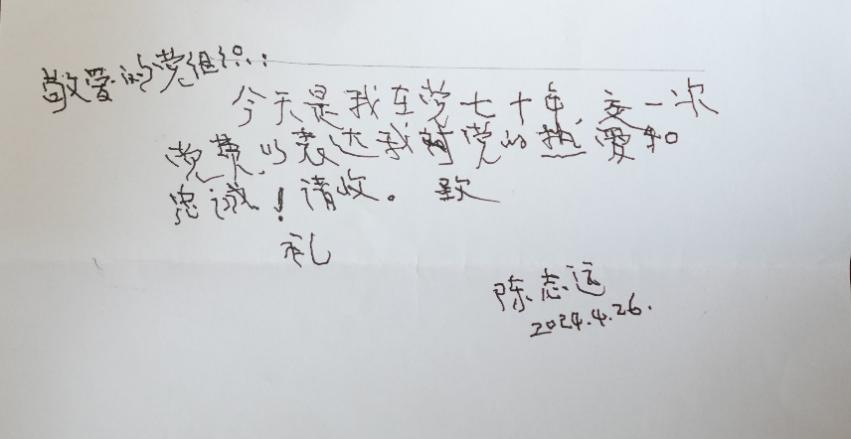 敬爱的党组织：
今天是我在党七十年,交一次
党费,以表达我对党的热爱和
忠诚！请收。致
礼
陈志远
2024.4.26.